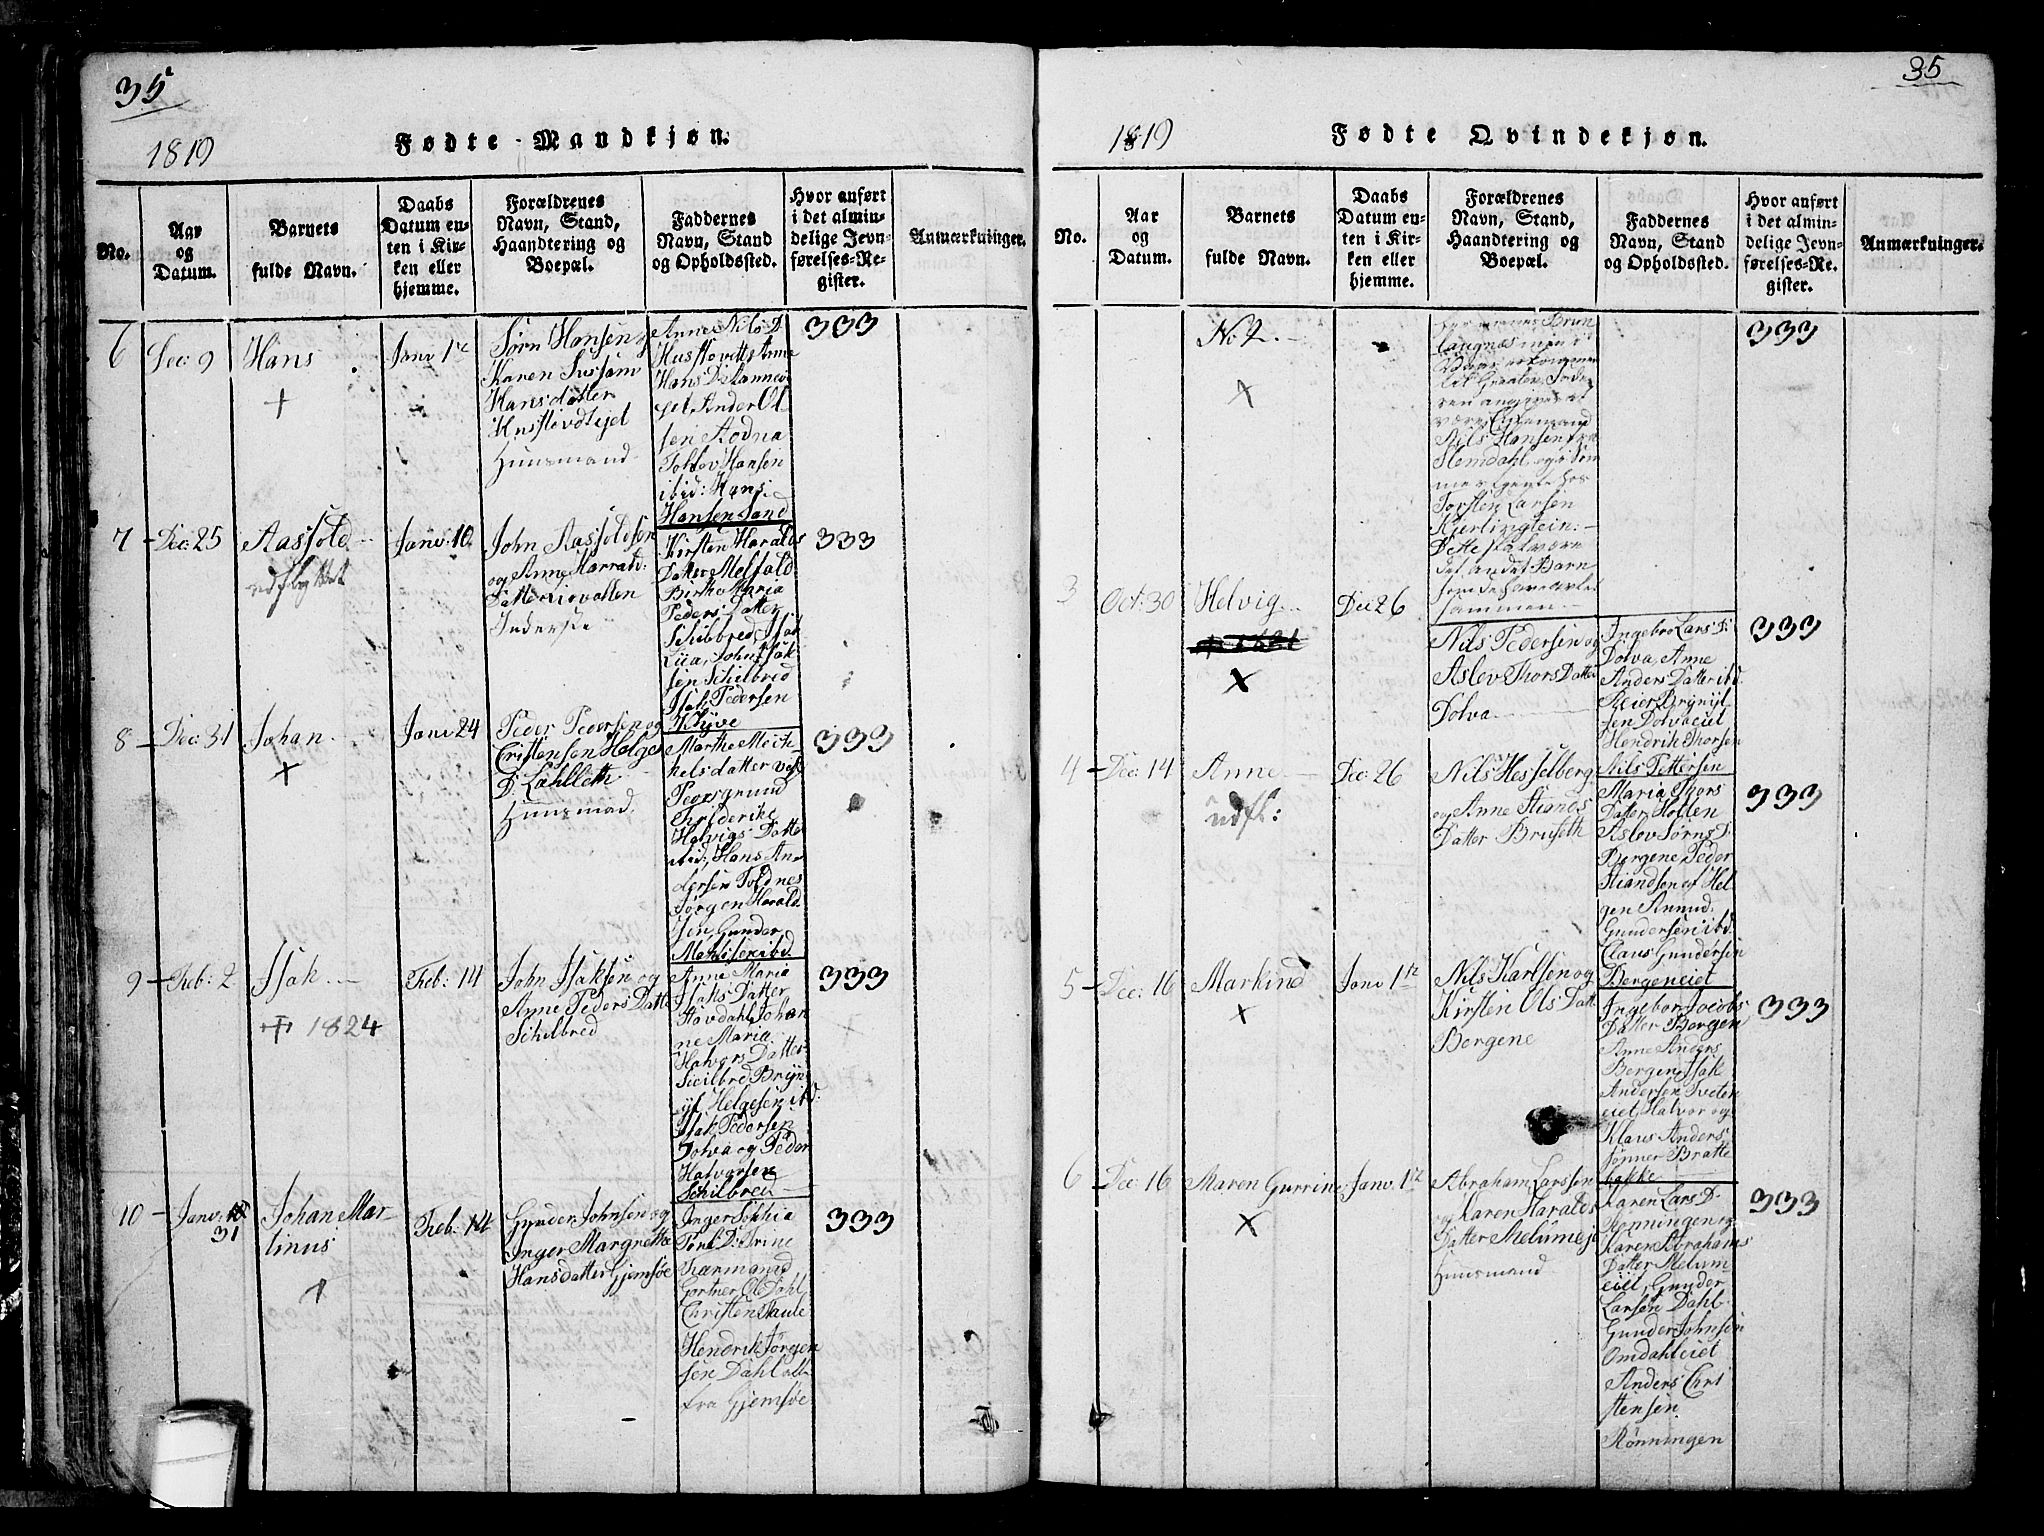 35
1819
Fødte Mandkjøn.
No.
Aar
og
Datum.
Barnets
fulde Navn.
Daabs
Datum en-
ten i Kir-
ken eller
hjemme.
Forældrenes
Navn, Stand,
Haandtering og
Boepæl.
Faddernes
Navn, Stand
og Opholdssted.
Hvor anført
i det almin-
delige Jevn-
førelses-Re-
gister.
Anmærkninger.
6
Dec: 9
Hans
+
Janv 1te
Sørn Hansen og
Karen
Hansdatter
Hustovdtejet
Huusmand
Anne Nils D
Anne
Hans D:
Anders Ol
sen Aodna
Tollev Hansen
ibid: Hans
Hansen Sand
333
7
Dec: 25
Aassold
udflyttet
Janv: 10
John Aassoldsen
og Anne Harrald:
Datter
Inderste
Kirsten Haralds
Datter
Maria
Peders Datter
Schilbred, Isak
Lia, John Isak
sen Schilbred
Isak Pedersen
Klyve
333
8
Dec: 31
Johan
x
Janv 24
Peder Pedersen og
Cristensen Helge
D:
Huusmad.
Marthe Mich
kelsdatter
Porsgrund
Friderike
Helvigs Datter
ibid:, Hans An
dersen Toldnes
Jørgen Harald
sen, Gunder
ibd.
333
9
Feb: 2
Isak
1824
Feb: 14
John Isaksen og
Anne Peders Datte
Schilbred
Anne Maria
Isaks Datter
Hovdahl, Johan
ne Maria
Halvors Datter
Scilbred Bryn
yl Helgesen ibd:
Isak Pedersen
Dolva og Peder
Halvorsen
Schilbred
333
10
Janv:
31
Johan Mar
tinus
+
Feb: 14
Gunder Johnsen og
Inger Margrethe
Hansdatter Gjemsøe
Inger Sophia
D: Trine
Gartner Ol Dahl
Christen Paule
Hendrik Jørgen
sen Dahl all
fra Gjemsøe
333
35
1819
Fødte Qvindekjøn.
No.
Aar
og
Datum.
Barnets
fulde Navn.
Daabs
Datum en-
ten i Kir-
ken eller
hjemme.
Forældrenes
Navn, Stand,
Haandtering og
Boepæl.
Faddernes
Navn, Stand
og Opholdssted.
Hvor anført
i det almin-
delige Jevn-
førelses-Re-
gister.
Anmærkninger.
No 2.
x
Brun
langnæs
angives at
være
Nils Hansen fra
Hemdahl og
hos
Torsten Larsen
Kjerlingtein:
Dette skal være
det andet Barn
som de have avlet
sammen
333
3
Oct: 30
Helvig
x
Dec 26
Nils Pedersen og
Aslov Thors Datter
Dolva
Ingebro Lars D:
Dolva, Anne
Anders Datter ibd.
Reier Brynyl
sen Dolvaeiet
Hendrik Thorsen
Nils Pettersen
333
4
Dec: 14
Anne
udfl:
Dec: 26
Nils Hesselberg
og Anne Stiands
Datter Bruseth
Maria Thors
Datter Holten
Aslov Sørns D:
Bergene Peder
Stiandsen af Hel
gen Amund
Gundersen ibd.
Claus Gundersen
Bergeneiet
333
5
Dec: 16
Markind
x
Janv 1te
Nils Karlsen og
Kirsten Ols Datt
Bergene
Ingebor Jocobs
Datter Bergen
Anne Anders
Bergen, Isak
Andersen Tveten
eiet, Halvor og
Klaus Anders
sønner Bratte
bakke
333
6
Dec: 16
Maren Gurrine
x
Janv. 1te
Abraham Larssen
og Karen Haralds
Datter Melumeje
Huusmand
Karen Lars D
Rønningen og
Karen Abrahams
Datter Melum
eiet, Gunder
Larsen Dahl
Gunder Johnsen
Omdahleiet
Anders Chri
stensen
Rønningen
333